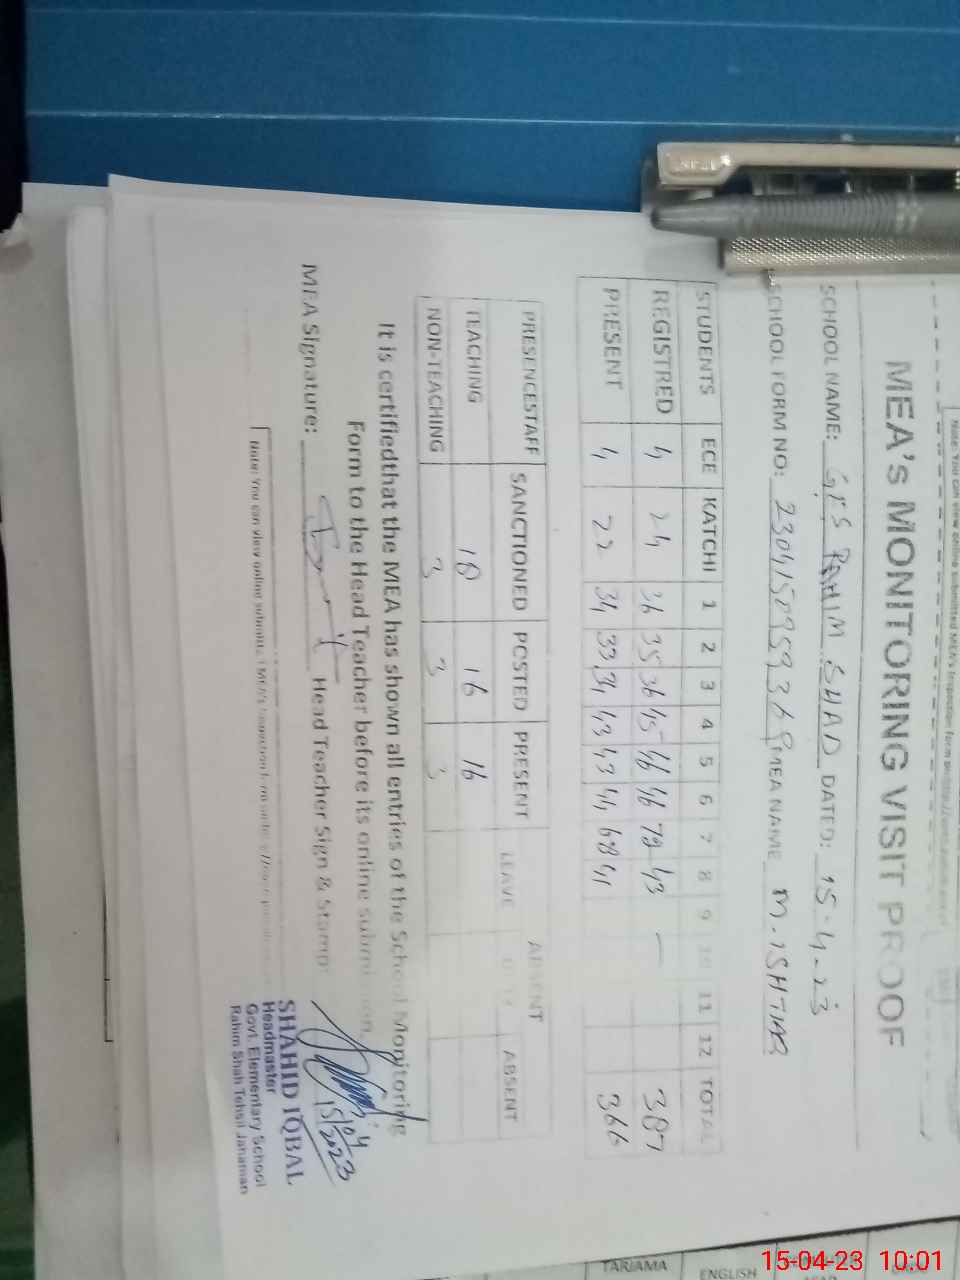 MEA's MONITORING VISIT PROOF
SCHOOL NAME: GES RAHIM SHAD DATED: 15-4-23
SCHOOL FORM NO: MEA NAME M. ISHTIAQ
STUDENTS ECE KATCHI 1 2 3 4 5 6 7 8 9 10 11 12 TOTAL
REGISTRED 4 24 36 35 36 45 46 46 72 43 — 387
PRESENT 4 22 34 33 34 43 43 44 68 41 366
PRESENCESTAFF SANCTIONED POSTED PRESENT ABSENT
LEAVE ABSENT
TEACHING 18 16 16
NON-TEACHING 3 3 3
It is certifiedthat the MEA has shown all entries of the School Monitoring
Form to the Head Teacher before its online submission.
MEA Signature: Head Teacher Sign & Stamp:
15/04/2023
SHAHID IQBAL
Headmaster
Govt. Elementary School
Rahim Shah Tehsil Jahanian
Note: You can view online submitted MEA's Inspection form
TARJAMA
ENGLISH
15-04-23 10:01